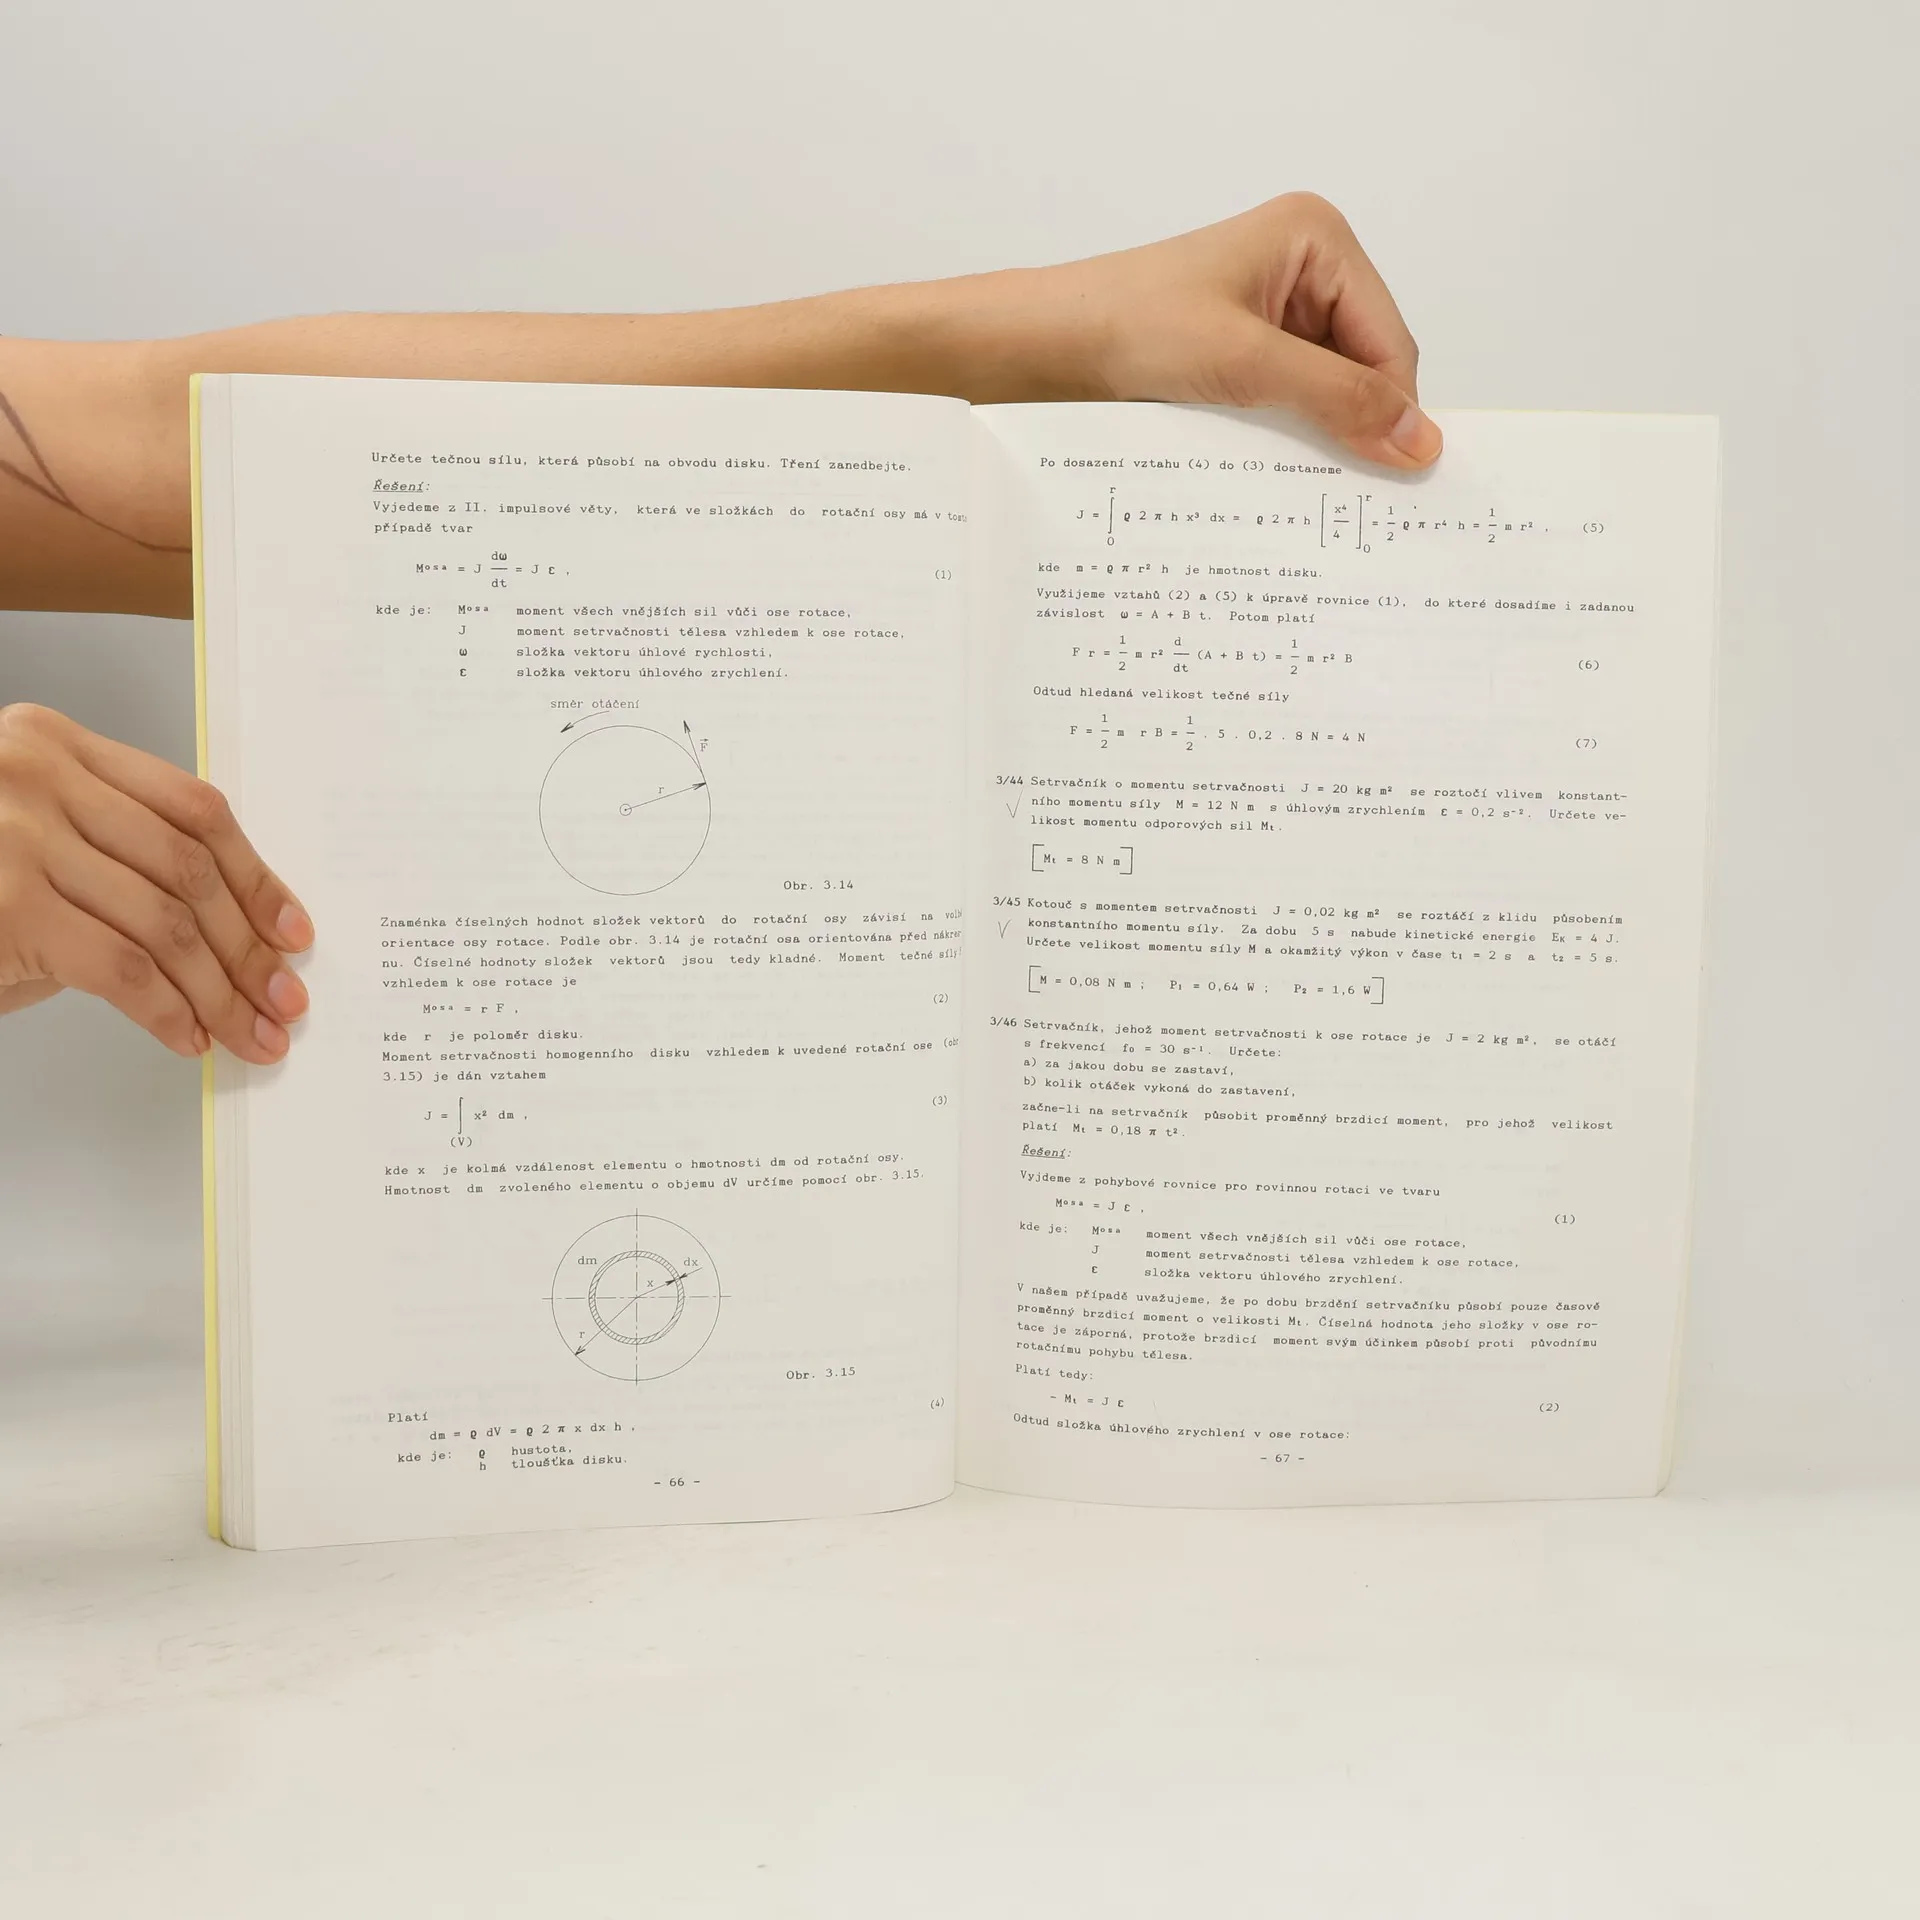 Určete tečnou sílu, která působí na obvodu disku. Tření zanedbejte.
Řešení:
Vyjedeme z II. impulsové věty, která ve složkách do rotační osy má v
případě tvar
Mosa = J dω/dt = J ε , (1)
kde je: Mosa moment všech vnějších sil vůči ose rotace,
J moment setrvačnosti tělesa vzhledem k ose rotace,
ω složka vektoru úhlové rychlosti,
ε složka vektoru úhlového zrychlení.
směr otáčení
F
r
Obr. 3.14
Znaménka číselných hodnot složek vektorů do rotační osy závisí na
orientace osy rotace. Podle obr. 3.14 je rotační osa orientována před
nu. Číselné hodnoty složek vektorů jsou tedy kladné. Moment tečné síly
vzhledem k ose rotace je
Mosa = r F , (2)
kde r je poloměr disku.
Moment setrvačnosti homogenního disku vzhledem k uvedené rotační ose
3.15) je dán vztahem
J = ∫(V) x² dm , (3)
kde x je kolmá vzdálenost elementu o hmotnosti dm od rotační osy.
Hmotnost dm zvoleného elementu o objemu dV určíme pomocí obr. 3.15.
dm
dx
x
r
Obr. 3.15
Platí
dm = ρ dV = ρ 2 π x dx h , (4)
kde je: ρ hustota,
h tloušťka disku.
- 66 -
Po dosazení vztahu (4) do (3) dostaneme
J = ∫₀ʳ ρ 2 π h x³ dx = ρ 2 π h [x⁴/4]₀ʳ = 1/2 ρ π r⁴ h = 1/2 m r² , (5)
kde m = ρ π r² h je hmotnost disku.
Využijeme vztahů (2) a (5) k úpravě rovnice (1), do které dosadíme i zadanou
závislost ω = A + B t. Potom platí
F r = 1/2 m r² d/dt (A + B t) = 1/2 m r² B (6)
Odtud hledaná velikost tečné síly
F = 1/2 m r B = 1/2 . 5 . 0,2 . 8 N = 4 N (7)
3/44 Setrvačník o momentu setrvačnosti J = 20 kg m² se roztočí vlivem konstant-
ního momentu síly M = 12 N m s úhlovým zrychlením ε = 0,2 s⁻². Určete ve-
likost momentu odporových sil Mt.
[Mt = 8 N m]
3/45 Kotouč s momentem setrvačnosti J = 0,02 kg m² se roztáčí z klidu působením
konstantního momentu síly. Za dobu 5 s nabude kinetické energie EK = 4 J.
Určete velikost momentu síly M a okamžitý výkon v čase t₁ = 2 s a t₂ = 5 s.
[M = 0,08 N m ; P₁ = 0,64 W ; P₂ = 1,6 W]
3/46 Setrvačník, jehož moment setrvačnosti k ose rotace je J = 2 kg m², se otáčí
s frekvencí f₀ = 30 s⁻¹. Určete:
a) za jakou dobu se zastaví,
b) kolik otáček vykoná do zastavení,
začne-li na setrvačník působit proměnný brzdicí moment, pro jehož velikost
platí Mt = 0,18 π t².
Řešení:
Vyjdeme z pohybové rovnice pro rovinnou rotaci ve tvaru
Mosa = J ε , (1)
kde je: Mosa moment všech vnějších sil vůči ose rotace,
J moment setrvačnosti tělesa vzhledem k ose rotace,
ε složka vektoru úhlového zrychlení.
V našem případě uvažujeme, že po dobu brzdění setrvačníku působí pouze časově
proměnný brzdicí moment o velikosti Mt. Číselná hodnota jeho složky v ose ro-
tace je záporná, protože brzdicí moment svým účinkem působí proti původnímu
rotačnímu pohybu tělesa.
Platí tedy:
- Mt = J ε (2)
Odtud složka úhlového zrychlení v ose rotace:
- 67 -